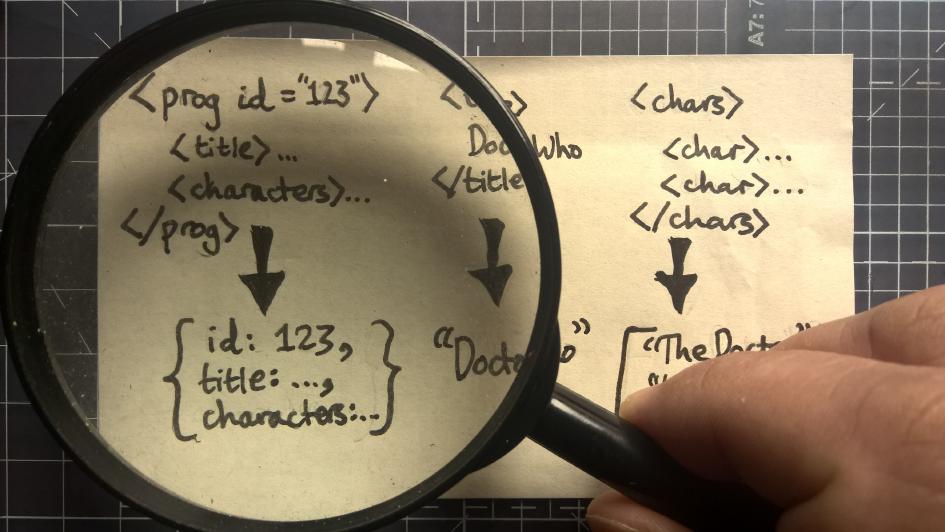 <prog id="123">
<title>...
<characters>...
</prog>
{ id: 123,
title: ...,
characters:... }
Who
</title
"Doctor
"
<chars>
<char>...
<char>...
</chars>
["The Doctor"
A7: